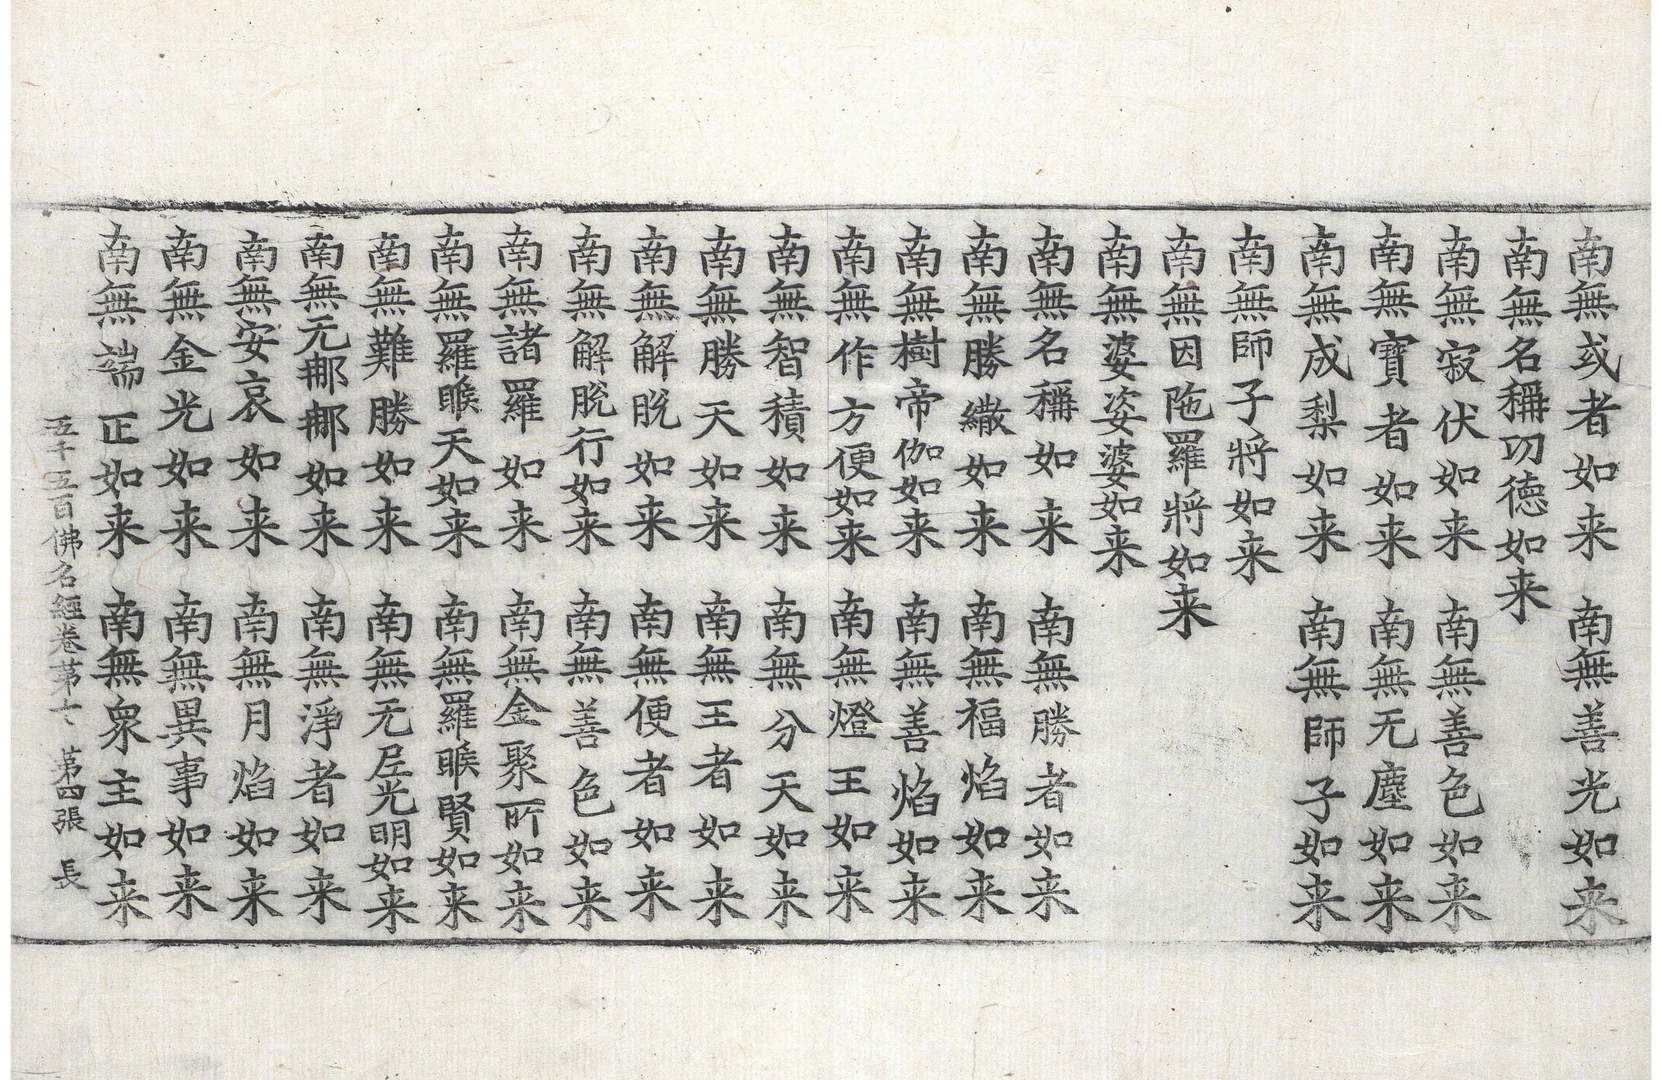 南無或者如来　南無善光如来
南無名稱功德如来
南無寂伏如来　南無善色如来
南無寶者如来　南無无塵如来
南無成梨如来　南無師子如来
南無師子將如来
南無因陁羅將如来
南無婆娑婆如来
南無名稱如来　南無勝者如来
南無勝繖如来　南無福焰如来
南無樹帝伽如来　南無善焰如来
南無作方便如来　南無燈王如来
南無智積如来　南無分天如来
南無勝天如来　南無王者如来
南無解脫如来　南無便者如来
南無解脫行如来　南無善色如来
南無諸羅如来　南無金聚所如来
南無羅睺天如来　南無羅睺賢如来
南無難勝如来　南無无光明如来
南無元那那如来　南無淨者如来
南無安哀如来　南無月焰如来
南無金光如来　南無異事如来
南無端正如来　南無衆主如来
五千五百佛名經卷第　第四張　長